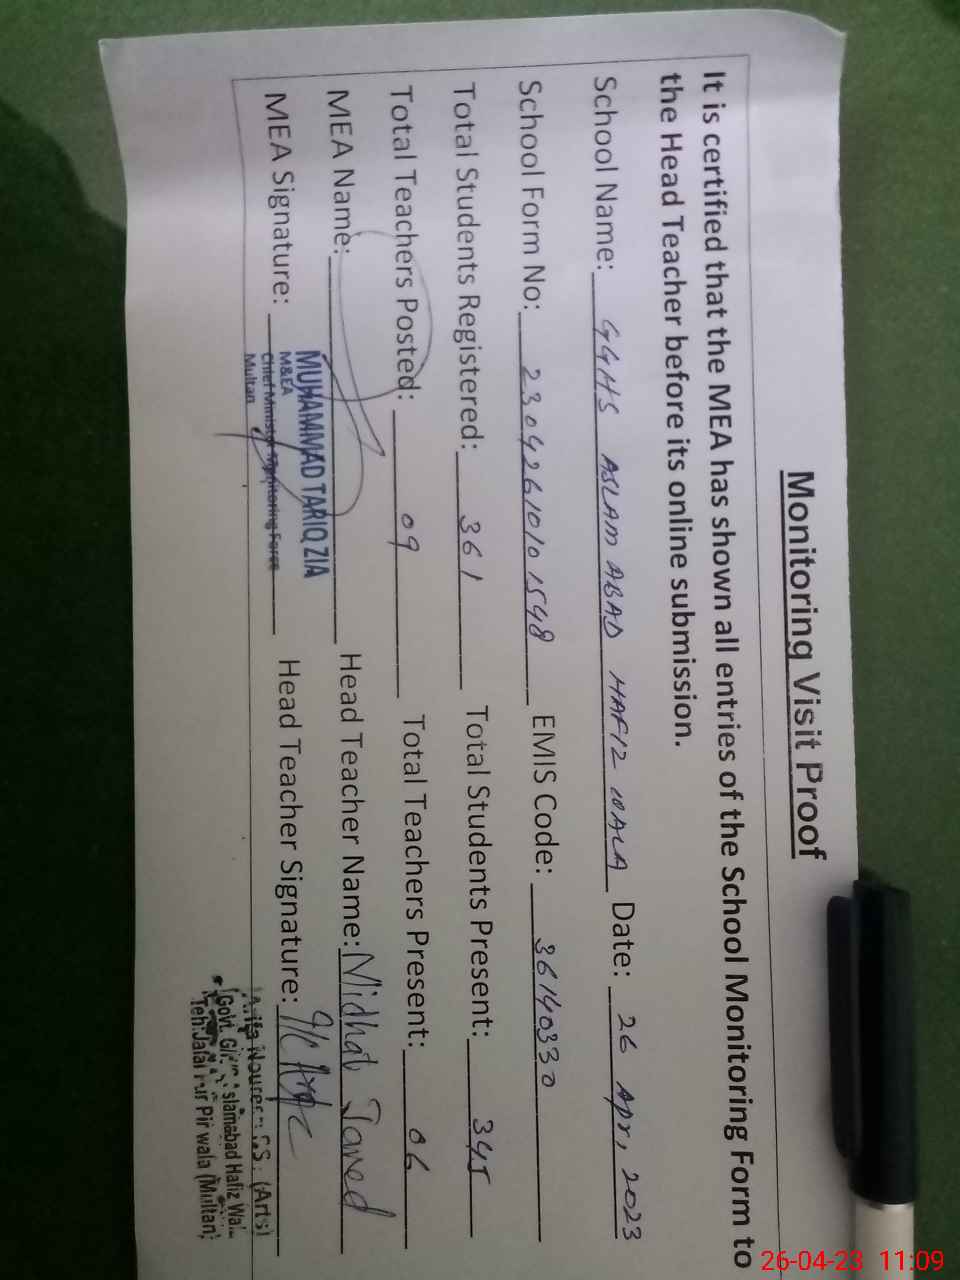 Monitoring Visit Proof
It is certified that the MEA has shown all entries of the School Monitoring Form to
the Head Teacher before its online submission.
School Name: GGHS ASLAM ABAD HAFIZ WALA Date: 26 Apr, 2023
School Form No: 2304261010 1548 EMIS Code: 36140330
Total Students Registered: 361 Total Students Present: 345
Total Teachers Posted: 09 Total Teachers Present: 06
MEA Name: Head Teacher Name: Midhat Javed
MUHAMMAD TARIQ ZIA
M&EA
Chief Minister Monitoring Force
Multan
MEA Signature: Head Teacher Signature: I/C
(Arts)
Govt. Islamabad Hafiz
Teh: Jalal Pur Pir wala (Multan)
26-04-23 11:09